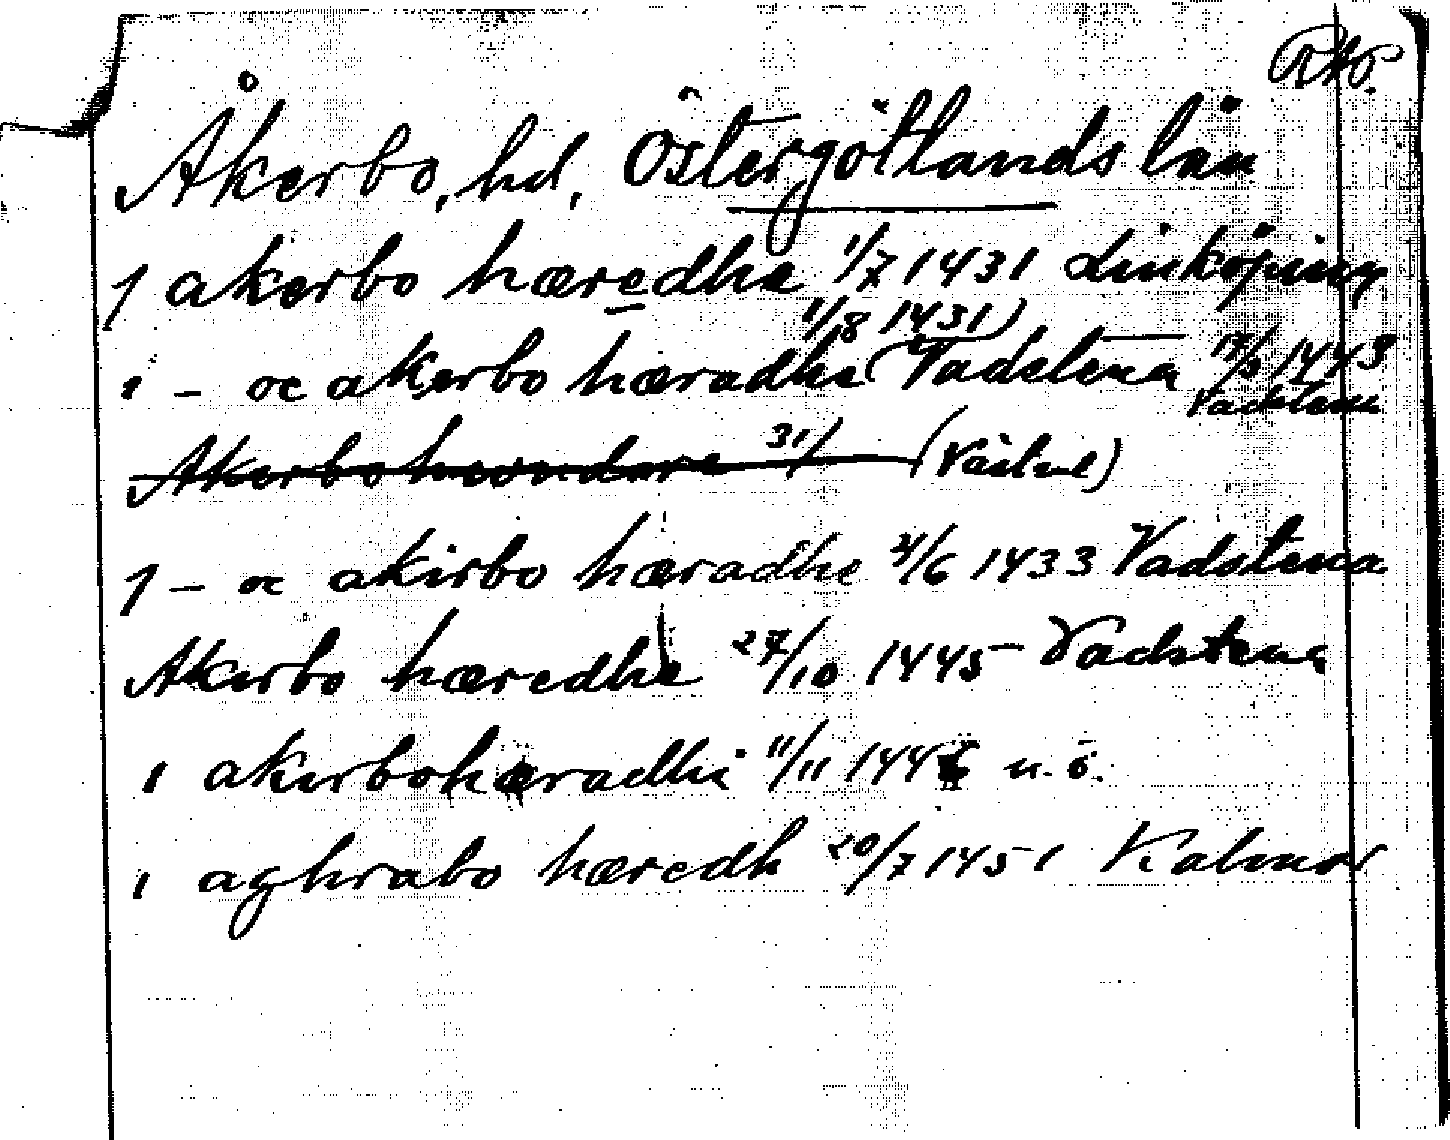 RAp.
Åkerbo, hd, Östergötlands län
J akerbo hæredhe 1/7 1431 Linköping
1/8 1431)
i - oc akerbo hæradhe (Vadstena 17/3 1449
Vadstena
Akerbohwndare 31/ (Västne)
J - oc akirbo hæradhe 21/6 1433 Vadstena
Akirbo hæredhe 27/10 1445 Vadstena
i akirbohæradhi 11/11 1446 u. o.
i aghrabo hæredh 20/7 1451 Kalmar